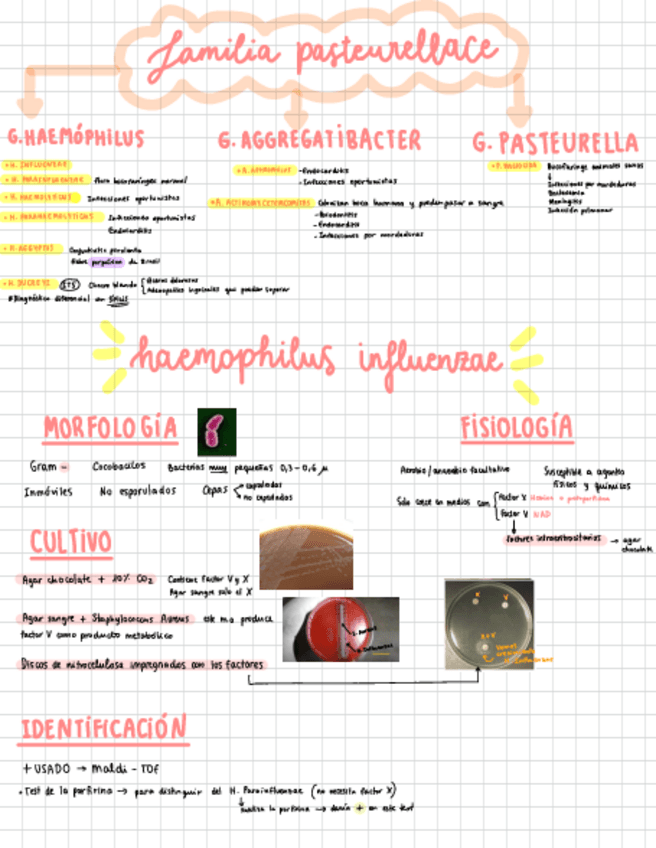 familia pasteurellace
G. HAEMÓPHILUS
G. AGGREGATIBACTER
G. PASTEURELLA
• H. INFLUENZAE
• H. PARAINFLUENZAE flora bucofaríngea normal
• H. HAEMOLYTICUS Infecciones oportunistas
• H. PARAHAEMOLYTICUS Infecciones oportunistas
Endocarditis
• H. AEGYPTIUS Conjuntivitis purulenta
fiebre purpúrica de Brasil
• H. DUCREYI ITS Chancro blando Úlceras dolorosas
Adenopatías inguinales que pueden supurar
Diagnóstico diferencial con Sífilis
• A. APHROPHILUS - Endocarditis
- Infecciones oportunistas
• A. ACTINOMYCETEMCOMITANS Colonizan boca humana y pueden pasar a sangre
- Periodontitis
- Endocarditis
- Infecciones por mordeduras
• P. MULTOCIDA Bucofaringe animales sanos
Infecciones por mordeduras
Bacteriemia
Meningitis
Infección pulmonar
haemophilus influenzae
MORFOLOGÍA
Gram - Cocobacilos Bacterias muy pequeñas 0,3-0,6 μ
Inmóviles No esporulados Cepas capsuladas
no capsuladas
FISIOLOGÍA
Aerobio/anaerobio facultativo Susceptible a agentes
físicos y químicos
Solo crece en medios con factor X Hemina o protoporfirina
factor V NAD
factores → agar
chocolate
CULTIVO
Agar chocolate + 10% CO2 Contiene factor V y X
Agar sangre solo el X
Agar sangre + Staphylococcus Aureus este m.o produce
factor V como producto metabólico
Discos de nitrocelulosa impregnados con los factores
X V
X+V
IDENTIFICACIÓN
+ USADO → maldi - TOF
• Test de la porfirina → para distinguir del H. Parainfluenzae (no necesita factor X)
la porfirina → darán + en este test